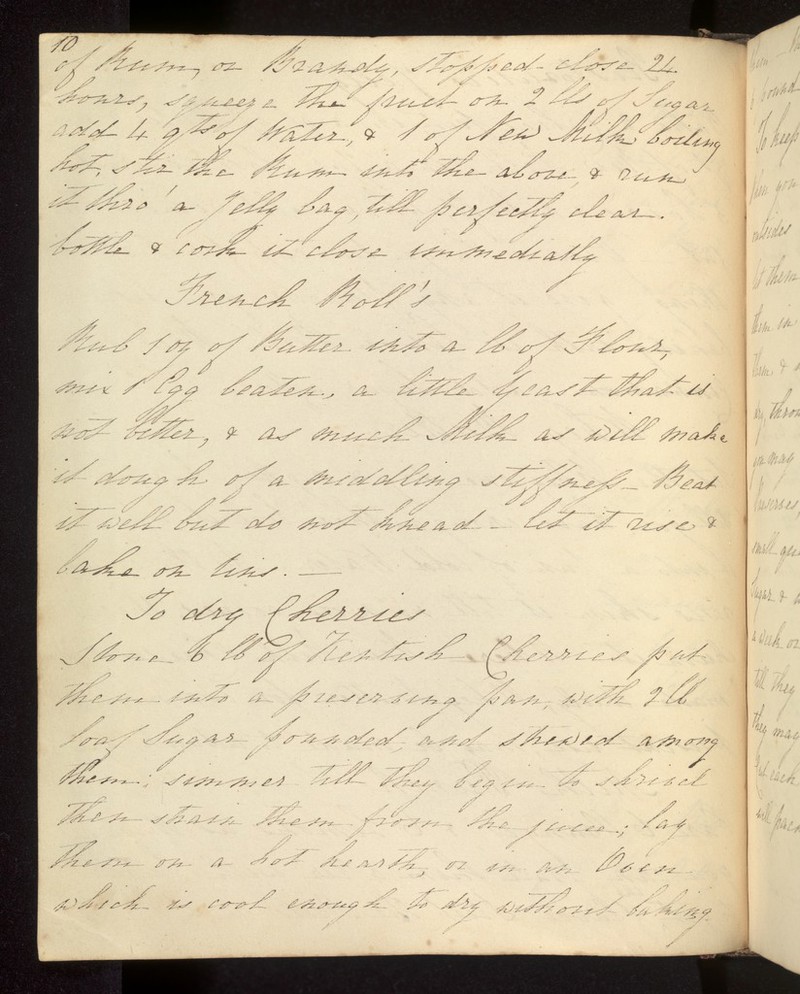 10
of Rum, or Brandy, stopped close 24
hours, squeeze the fruit on 2 lbs of Sugar
add 4 qts of Water, & 1 of New Milk boiling
hot, stir the Rum into the above, & run
it thro' a Jelly bag, till perfectly clear.
bottle & cork it close immedially
French Roll's
Rub 1 oz of Butter into a lb of Flour,
mix 1 Egg beaten, a little Yeast that is
not bitter, & as much Milk as will make
it dough of a middling stiffness - Beat
it well but do not knead - let it rise &
bake on tins. —
To dry Cherries
Stone 6 lb of Kentish Cherries put
them into a preserving pan, with 2 lb
loaf Sugar pounded, and strewed among
them; simmer till they begin to shrivel
then strain them from the juice; lay
them on a hot hearth, or in an Oven
which is cool enough to dry without baking.
To keep
let them
them in
them &
you may
small
Sugar &
a week or
till they
they may